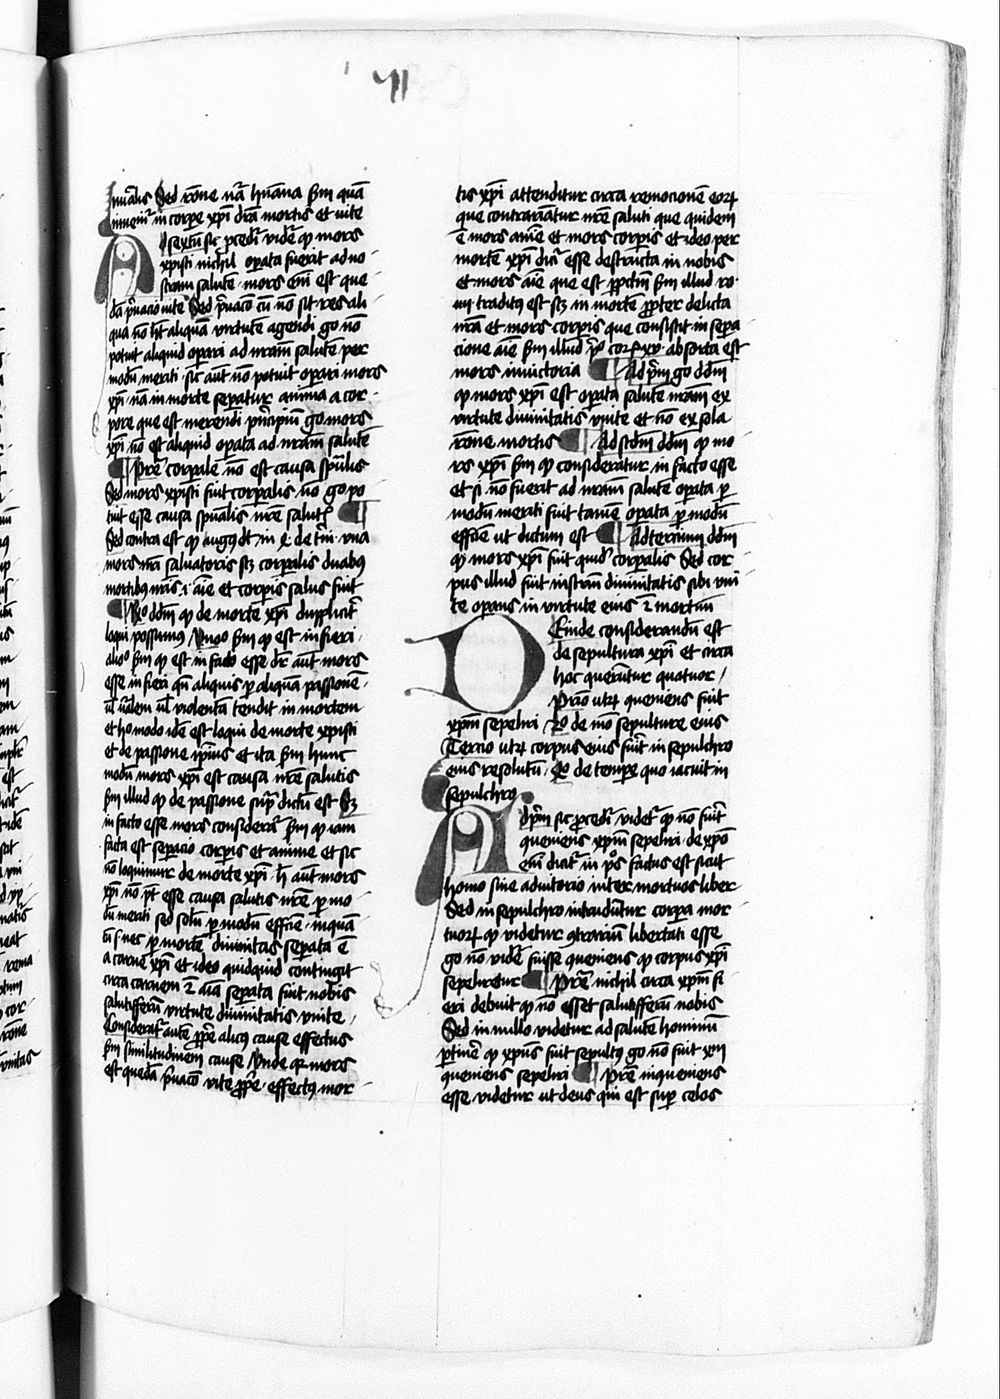 inuᷓalis Sed rōne nr̄a hūana ẜm quā
inuenit᷑ in corpe xp̄i dr̄ia mortis et uite
Ad sextū sic ꝓcedit᷑ videt᷑ ꝙ mors
xpisti nichil operata fuerit ad no
stram salutē mors em̄ est que
dā p̄uacio uite Sed p̄uacō cū nō sit res ali
qua nō hꝫ aliquā virtutē agendi gͦ nō
potuit aliquid operari ad nr̄am salutē per
modū meriti · sic aut̄ nō potuit operari mors
xp̄i nā in morte separatur anima a cor
pore que est merendi p̄ncipiū gͦ mors
xp̄i nō est aliquid operata ad nr̄am salutē
¶ Pret̄ corporale nō est causa sp̄ualis
Sed mors xpisti fuit corporalis nō gͦ po
tuit esse causa sp̄ualis nr̄e salutis ¶
Sed contra est ꝙ augꝰ dt̄ in 4 de t̄ni · vna
mors nr̄a saluatoris sꝫ corporalis duabꝰ
mortibꝰ nr̄is · i · aīe et corporis salus fuit
¶ Rͦ dd̄m ꝙ de morte xp̄i duplicit᷑
loqui possumus Vnoͦ ẜm ꝙ est in fieri
alioͦ ẜm ꝙ est in facto esse dr̄ aut̄ mors
esse in fieri qn̄ aliquis ꝑ aliquā passionē
ul̄ nālem ul̄ violentā tendit in mortem
et hͦ modo idē est loqui de morte xpisti
et de passione ip̄ius et ita ẜm hunc
modū mors xp̄i est causa nr̄e salutis
ẜm illud ꝙ de passione supᷓ dictū est Sꝫ
in facto esse mors considerat᷑ ẜm ꝙ iam
facta est separacio corporis et anime et sic
nō loquimur de morte xp̄i · h̄ aut̄ mors
xp̄i nō pt̄ esse causa salutis nr̄e ꝑ mo
dū meriti sed solū ꝑ modū efficiē · inquā
tū s · nec ꝑ mortē diuinitas separata ē
a carne xp̄i et ideo quidquid contingit
circa carnem · aīa separata fuit nobis
salutiferū virtute diuinitatis vnite
Considerat᷑ autē ꝓprie alicꝰ cause effectus
ẜm similitudinem cause Vnde qꝛ mors
est quedā p̄uacō vite ꝓprie · effectꝰ mor
tis xp̄i attenditur circa remocionē eoꝝ
que contrariātur nr̄e saluti que quidem
ē mors aīme et mors corporis et ideo per
mortē xp̄i dicit᷑ esse destructa in nobis
et mors aīe que est ꝑ pctm̄ ẜm illud ro ·
4 traditꝰ est sꝫ in mortē propter delicta
nr̄a et mors corporis que consistit in sepa
cione aīe ẜm illud p̄ᵒ coꝝ xv · absorta est
mors in victoria ¶ Ad p̄m gͦ dd̄m
ꝙ mors xp̄i est operata salutē nr̄am ex
virtute diuinitatis vnite et nō ex sola
rōne mortis ¶ Ad scdm̄ dd̄m ꝙ mo
rs xp̄i ẜm ꝙ consideratur in facto esse
et si nō fuerit ad nr̄am salutē operata ꝑ
modū meriti fuit tamē operata ꝑ modū
efficiē ut dictum est ¶ Ad terciū dd̄m
ꝙ mors xp̄i fuit quidē corporalis Sed cor
pus illud fuit instrm̄ diuinitatis sibi vni
te operans in virtute eius · mortuū
Deinde considerandū est
de sepultura xp̄i et circa
hoc querūtur quatuor /
Primo utꝝ queniens fuit
xpm̄ sepeliri 2ͦ de mō sepulture eius
Tercio utꝝ corpus eius fuit in sepulchro
eius resolutū · 4ͦ de tempore quo iacuit in
sepulchro
Ad p̄m sic ꝓcedit᷑ videt᷑ ꝙ nō fuit
queniens xpm̄ sepeliri de xpō
em̄ dicit᷑ in pͦs factus est sicut
homo sine adiutorio inter mortuos liber
Sed in sepulchro includūtur corpora mor
tuoꝝ ꝙ videtur ꝯtrariū libertati esse
gͦ nō videt᷑ fuisse queniens ꝙ corpus xp̄i
sepeliretur ¶ Pret̄ nichil circa xpm̄ fi
eri debuit ꝙ nō esset salutiferū nobis
Sed in nullo videtur ad salutē hominū
ꝑtinere ꝙ xpus fuit sepultꝰ gͦ nō fuit xm̄
queniens sepeliri ¶ Pret̄ inqueniens
esse videtur ut deus qui est super celos